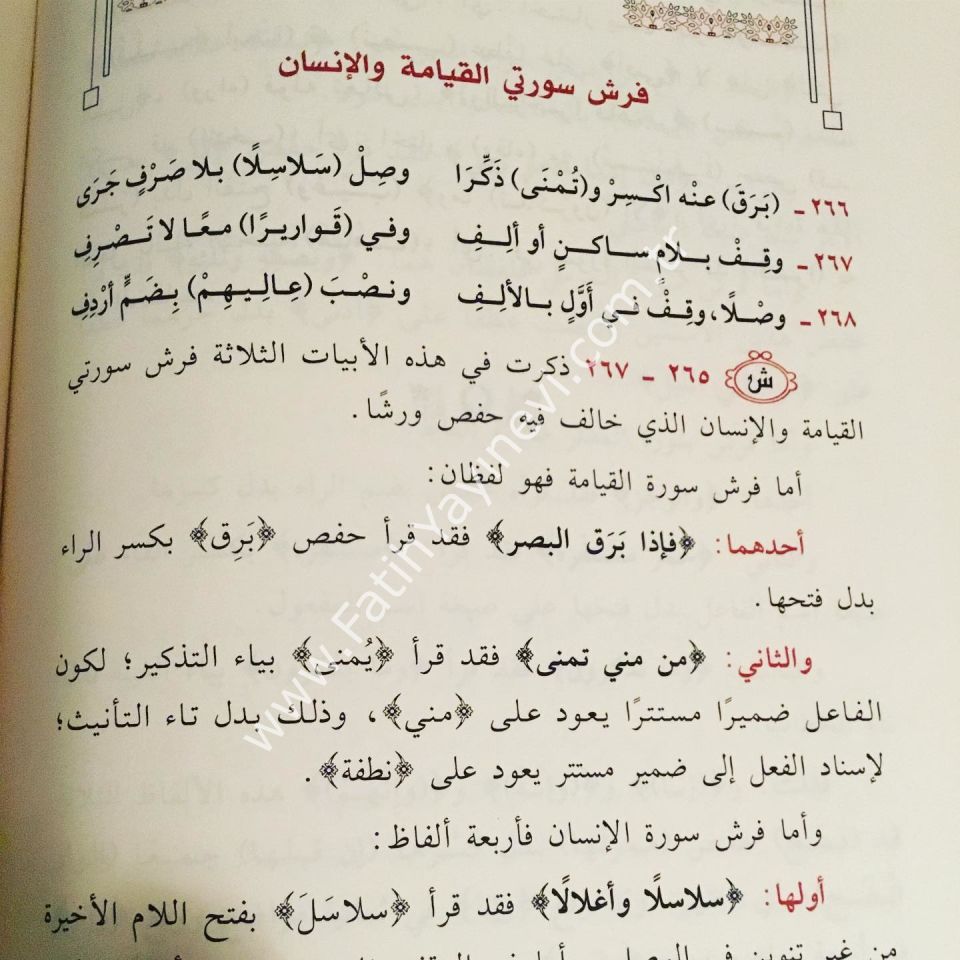 فرش سورتي القيامة والإنسان
٢٦٦ ـ (بَرَقَ) عنْه اكْـسِرْ و(تُـمْنَى) ذَكِّرَا وصِلْ (سَلَاسِلًا) بلا صَرْفٍ جَرَى
٢٦٧ ـ وقِـفْ بـلامٍ سـاكـنٍ أو ألِـفِ وفي (قَـواريـرًا) معًـا لا تَـصْـرِفِ
٢٦٨ ـ وصْلًا، وقِفْ في أوَّلٍ بـالألِفِ ونصْبَ (عِالِيـهِمْ) بِضَمٍّ أرْدِفِ
ش ٢٦٥ ـ ٢٦٧ ذكرت في هذه الأبيات الثلاثة فرش سورتي
القيامة والإنسان الذي خالف فيه حفص ورشًا.
أما فرش سورة القيامة فهو لفظان:
أحدهما: ﴿فإذا بَرَق البصر﴾ فقد قرأ حفص ﴿بَرِق﴾ بكسر الراء
بدل فتحها.
والثاني: ﴿من مني تمنى﴾ فقد قرأ ﴿يُمنى﴾ بياء التذكير؛ لكون
الفاعل ضميرًا مستترًا يعود على ﴿مني﴾، وذلك بدل تاء التأنيث؛
لإسناد الفعل إلى ضمير مستتر يعود على ﴿نطفة﴾.
وأما فرش سورة الإنسان فأربعة ألفاظ:
أولها: ﴿سلاسلًا وأغلالًا﴾ فقد قرأ ﴿سلاسَلَ﴾ بفتح اللام الأخيرة
من غير تنوين في
www.FatihYayinevi.com.tr